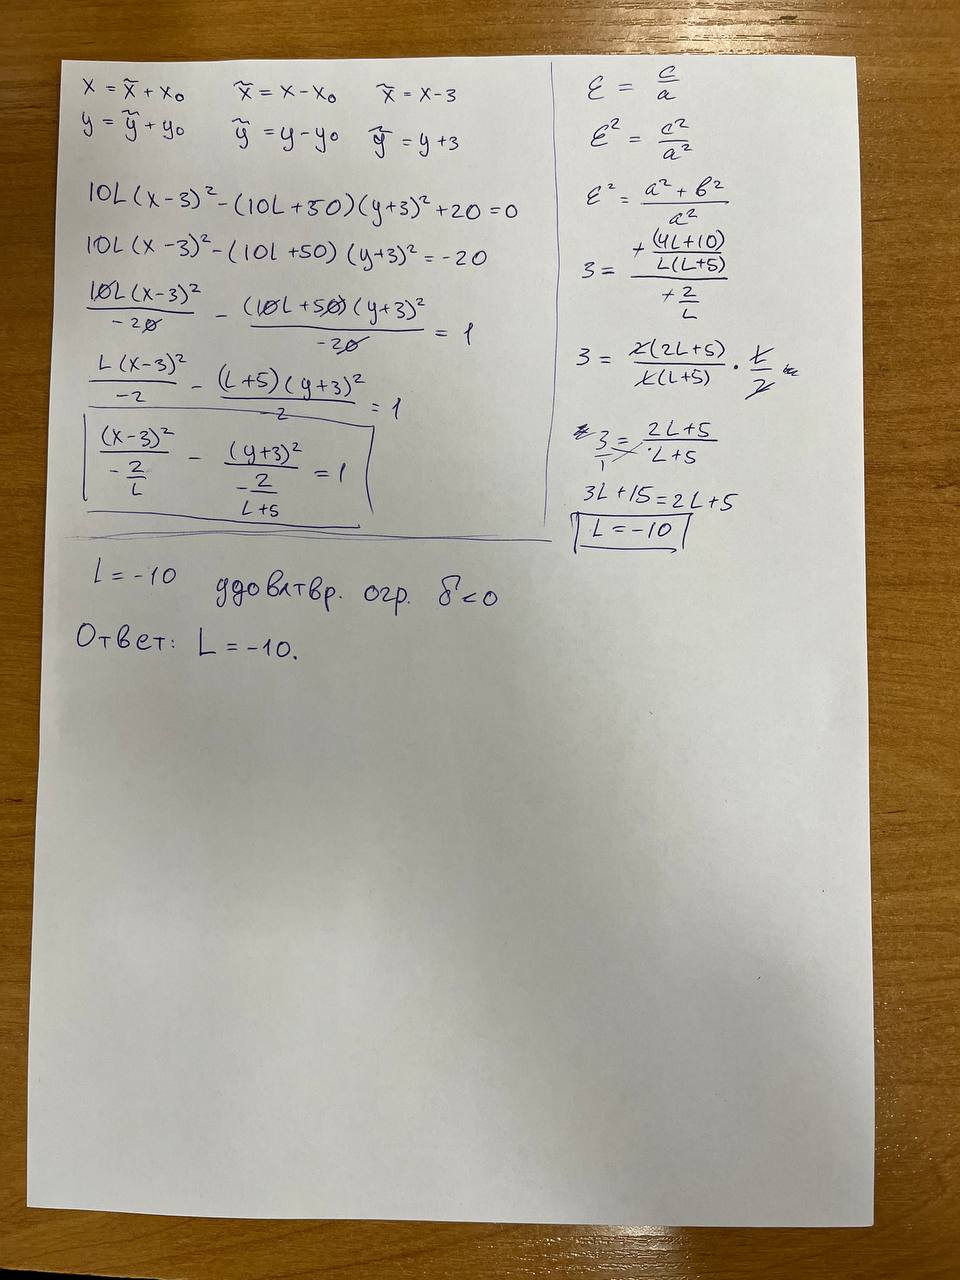 x = x̃ + x₀    x̃ = x - x₀    x̃ = x - 3
y = ỹ + y₀    ỹ = y - y₀    ỹ = y + 3
10L(x-3)² - (10L+50)(y+3)² + 20 = 0
10L(x-3)² - (10L+50)(y+3)² = -20
10L(x-3)²/-20 - (10L+50)(y+3)²/-20 = 1
L(x-3)²/-2 - (L+5)(y+3)²/-2 = 1
(x-3)²/(-2/L) - (y+3)²/(-2/(L+5)) = 1
ε = c/a
ε² = c²/a²
ε² = (a² + b²)/a²
3 = (+(4L+10)/(L(L+5)))/(+2/L)
3 = 2(2L+5)/(L(L+5)) · L/2
3/1 = (2L+5)/(L+5)
3L+15 = 2L+5
L = -10
L = -10 удовлтвр. огр. δ<0
Ответ: L = -10.